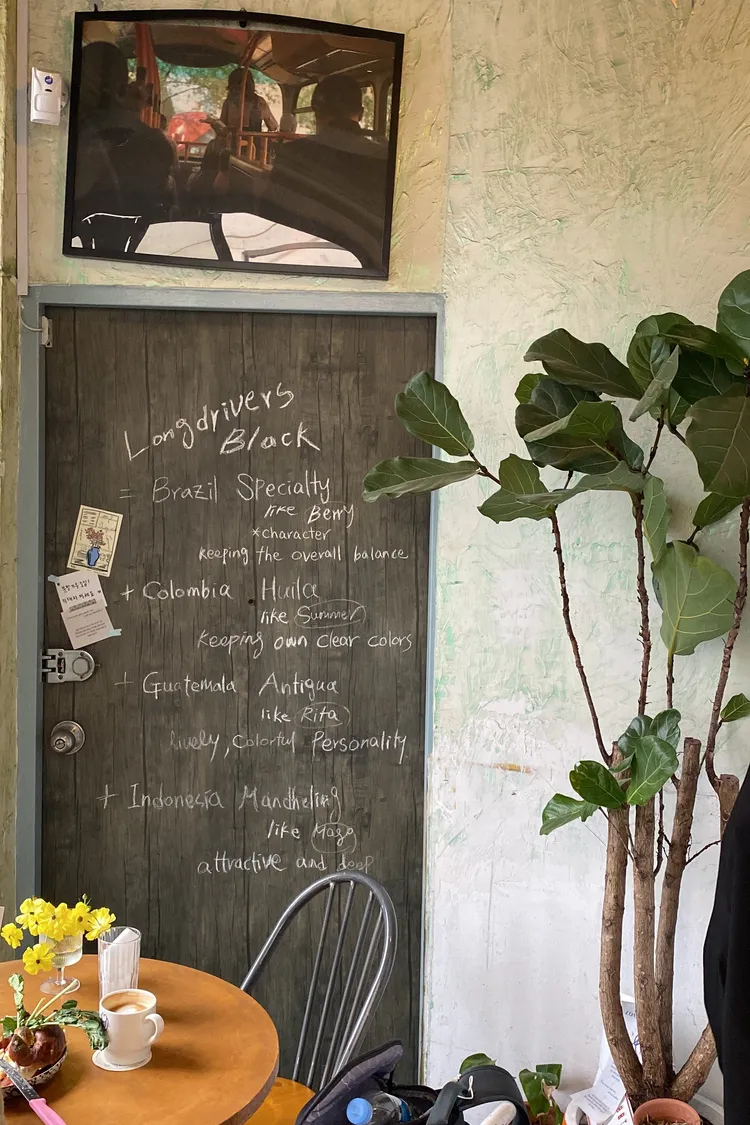 Longdrivers
Black
= Brazil Specialty
like Berry
*character
keeping the overall balance
+ Colombia Huila
like Summer
keeping own clear colors
+ Guatemala Antigua
like Rita
lively, Colorful Personality
+ Indonesia Mandheling
like
attractive and deep